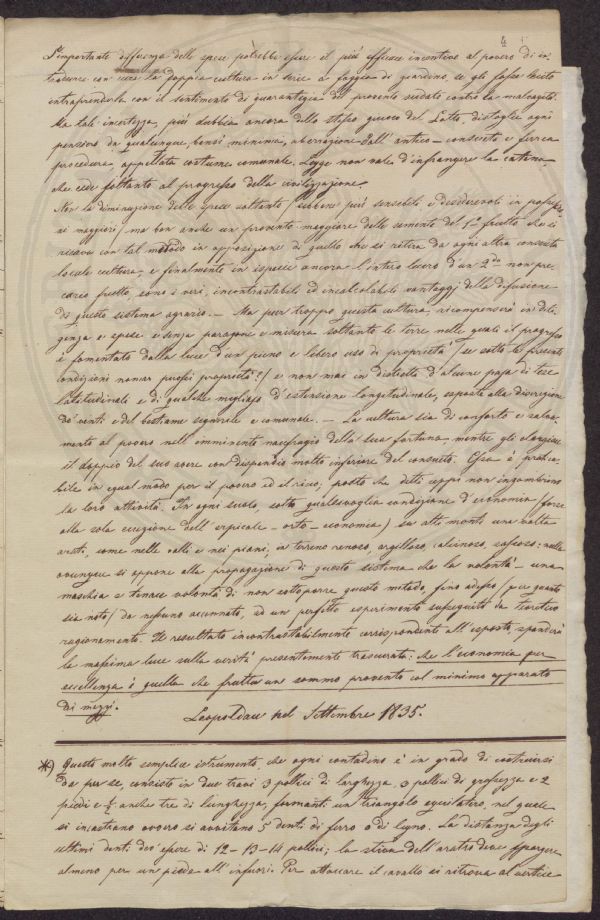 4
L'importante differenza delle spese potrebbe essere il più efficace incentivo al povero di in-
tradurre con essa la doppia cultura in serie a foggia di giardino, se gli fosse lecito
intraprenderla con il sentimento di guarantigia del provento sudato contro la malvagità.
Ma tale incertezza, più dubbia ancora dello stesso giuoco del Lotto, distoglie ogni
pensiero da qualunque, bensì minima, aberrazione dall'antico – consueto e ferrea
procedura, appellata costume comunale. Legge non vale d'infrangere la catena
che cede soltanto al progresso della civilizzazione.
Non la diminuzione delle spese soltanto / sebbene più sensibile e desiderevoli in possessi
ai maggiori / ma bon anche un provento maggiore delle semente del 1mo frutto che si
ricava con tal metodo in opposizione di quello che si ritira da ogni altra consueta
locale cultura, e finalmente in ispecie ancora l'intero lucro d'un 2do non pre-
cario frutto, sono i veri, incontrastabili ed incalcolabili vantaggi della diffusione
di questo sistema agrario. – Ma pur troppo questa cultura, ricompenserà in dili-
genza e spese e senza paragone e misura soltanto le terre nelle quali il progresso
è fomentato dalla luce d'un pieno e libero uso di proprietà / se sotto le presenti
condizioni nomar puossi proprietà?/ e non mai in distretti d'alcune passa di tese
latitudinale e di qualche migliajo d'estensione longitudinale, esposte alla discrezione
de' venti e del bestiame signorile e comunale. – La cultura sia di conforto e salva-
mento al povero nell'imminente naufragio della sua fortuna, mentre gli elargisce
il doppio del suo avere con dispendio molto inferiore del consueto. Essa è pratica-
bile in egual modo per il povero ed il ricco; posto che detti ceppi non ingombrino
la loro attività. In ogni suolo, sotto qualsivoglia condizione d'economia / forse
alla sola eccezione dell' – orto – economia / su alti monti una volta
come nelle valli e nei piani, in terreno renoso, argilloso, calcinoso, sassoso: nulla
ovunque si oppone alla propagazione di questo sistema che la volontà – una
maschia e tenace volontà di non sottoporre questo metodo, fino adesso / per quanto
sia noto / da nessuno accennato, ad un perfetto esperimento susseguito da teoretico
ragionamento. Il resultato incontrastabilmente corrispondente all'esposto, spanderà
la massima luce sulla verità presentemente trascurata: che l'economia per
eccellenza è quella che frutta un sommo provento col minimo apparato
di mezzi.
Leopoldau nel Settembre 1835.
*) Questo molto semplice istrumento, che ogni contadino è in grado di costruirsi
da per se, consiste in due travi 3 pollici di larghezza, 3 pollici di grossezza e 2
piedi e ½ anche tre di lunghezza, formanti un triangolo equilatero, nel quale
si incastrano ovvero si avvitano 5 denti di ferro o di legno. La distanza degli
ultimi denti dev'essere di 12 – 13 – 14 pollici; la stiva dell'aratro deve sporgere
almeno per un piede all'infuori. Per attaccare il cavallo si ritrova al vertice